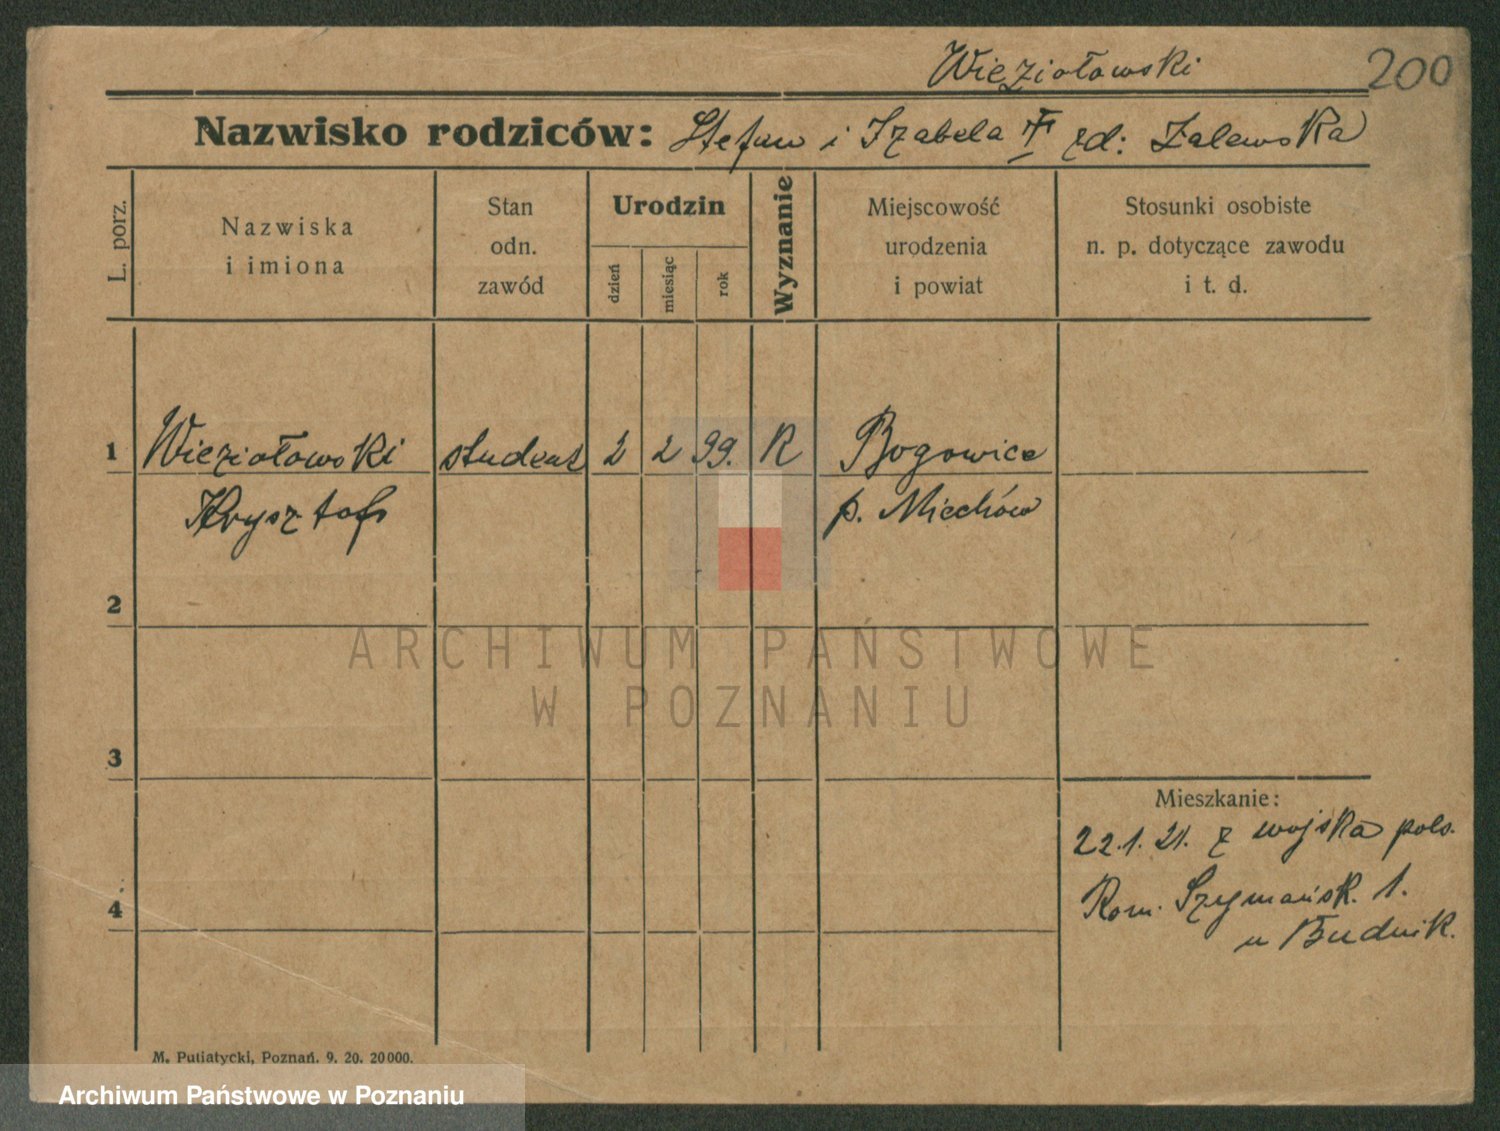 Wieziołowski
200
Nazwisko rodziców: Stefan i Izabela zd: Zalewska
L. porz.
Nazwiska
i imiona
Stan
odn.
zawód
Urodzin
dzień
miesiąc
rok
Wyznanie
Miejscowość
urodzenia
i powiat
Stosunki osobiste
n. p. dotyczące zawodu
i t. d.
1 Wieziołowski student 2 2 99. R Bogowice
Krysztof p. Miechów
2
ARCHIWUM PAŃSTWOWE
W POZNANIU
3
Mieszkanie:
22.1.21. z wojska pols.
4
Rom. Szymańsk. 1.
u Budnik.
M. Putiatycki, Poznań. 9. 20. 20000.
Archiwum Państwowe w Poznaniu